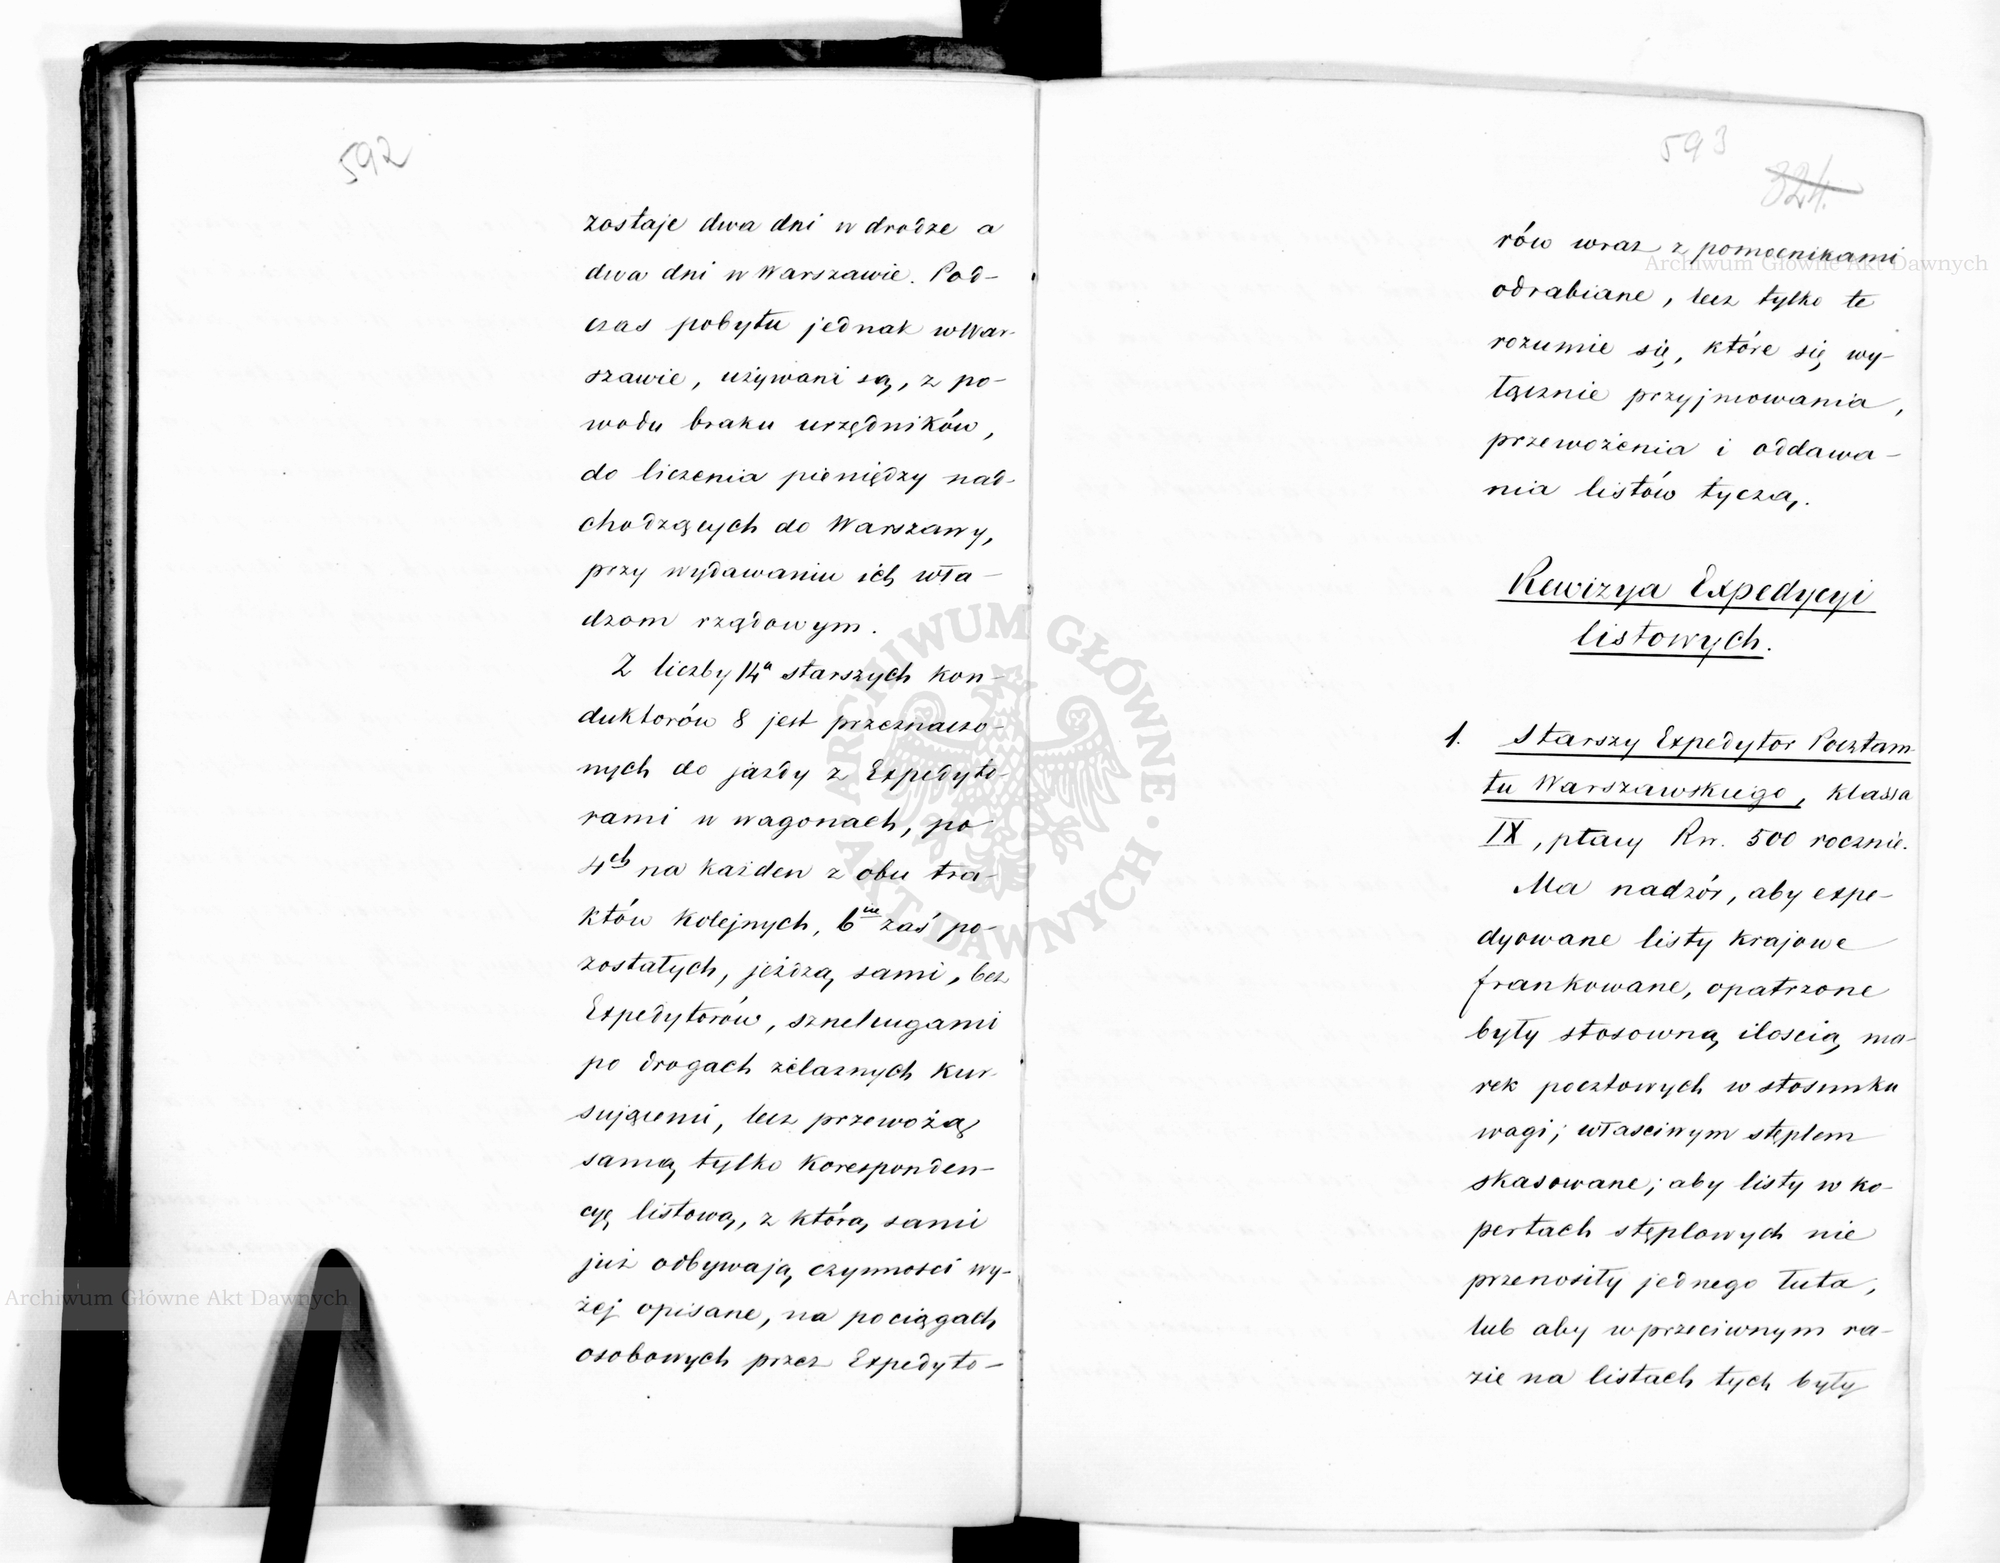 592
zostaje dwa dni w drodze a
dwa dni w Warszawie. Pod-
czas pobytu jednak w War-
szawie, używani są, z po-
wodu braku urzędników,
do liczenia pieniędzy nad-
chodzących do Warszawy,
przy wydawaniu ich wła-
dzom rządowym.
Z liczby 14u starszych kon-
duktorów 8 jest przeznaczo-
nych do jazdy z Expedyto-
rami w wagonach, po
4ch na każden z obu tra-
któw kolejnych, 6iu zaś po-
zostałych, jeżdżą sami, bez
Expedytorów, sznelcugami
po drogach żelaznych kur-
sującemi, lecz przewożą
samą tylko koresponden-
cyę listową, z którą sami
już odbywają czynności wy-
żej opisane, na pociągach
osobowych przez Expedyto-
593
324.
rów wraz z pomocnikami
odrabiane, lecz tylko te
rozumie się, które się wy-
łącznie przyjmowania,
przewożenia i oddawa-
nia listów tyczą.
Rewizya Expedycyi
listowych.
1. Starszy Expedytor Pocztam-
tu Warszawskiego, klassa
IX, płacy Rs. 500 rocznie.
Ma nadzór, aby expe-
dyowane listy krajowe
frankowane, opatrzone
były stosowną ilością ma-
rek pocztowych w stosunku
wagi; właściwym stęplem
skasowane; aby listy w ko-
pertach stęplowych nie
przenosiły jednego łuta,
lub aby w przeciwnym ra-
zie na listach tych były
Archiwum Główne Akt Dawnych
Archiwum Główne Akt Dawnych
ARCHIWUM GŁÓWNE AKT DAWNYCH